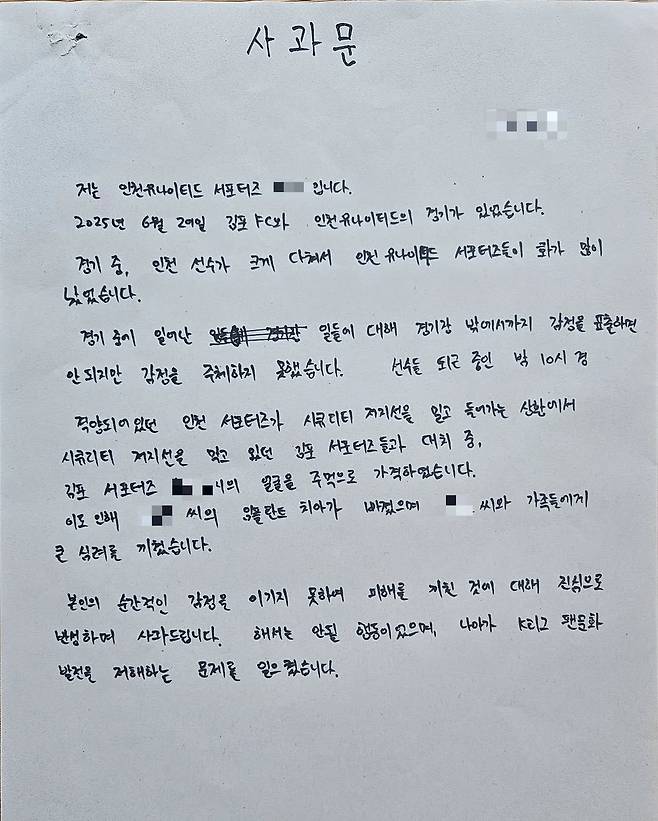 사과문
저는 인천유나이티드 서포터즈 입니다.
2025년 6월 29일 김포FC와 인천유나이티드의 경기가 있었습니다.
경기 중, 인천 선수가 크게 다쳐서 인천유나이티드 서포터즈들이 화가 많이
났었습니다.
경기 중에 일어난 일들에 대해 경기장 밖에서까지 감정을 표출하면
안되지만 감정을 주체하지 못했습니다. 선수들 퇴근 중인 밤 10시 경
격양되어있던 인천 서포터즈가 시큐리티 저지선을 밀고 들어가는 상황에서
시큐리티 저지선을 막고 있던 김포 서포터즈들과 대치 중,
김포 서포터즈 씨의 얼굴을 주먹으로 가격하였습니다.
이로 인해 씨의 임플란트 치아가 빠졌으며 씨와 가족들에게
큰 심려를 끼쳤습니다.
본인의 순간적인 감정을 이기지 못하여 피해를 끼친 것에 대해 진심으로
반성하며 사과드립니다. 해서는 안될 행동이었으며, 나아가 K리그 팬문화
발전을 저해하는 문제를 일으켰습니다.